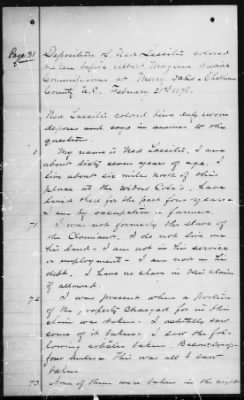 Page 31
Deposition of Ned Lassiter colored
taken before Albert Magnus Special
Commissioner at Merry
County N.C. February 21st 1878.
Ned Lassiter colored being duly sworn
deposes and says in answer to the
question.
1 My name is Ned Lassiter. I am
about sixty seven years of age. I
live about six miles north of this
place at the Widow Cole's. I have
lived there for the past four years &
I am by occupation a farmer.
71 I was not formerly the slave of
the Claimant. I do not live on
his land. I am not in his service
or employment. I am not in his
debt. I have no share in this claim
if allowed.
72 I was present when a portion
of the property charged for in this
claim was taken. I actually saw
some of it taken. I saw the fol-
lowing articles taken
four This was all I saw
taken.
73 None of them were taken in the night